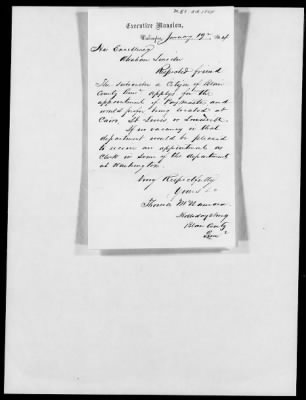 Executive Mansion,
Washington, January 19th, 1864
His Excellency
Abraham Lincoln
Respected friend
The subscriber a Citizen of Blair
County Penna applys for the
appointment of Paymaster and
would prefer being located at
Cairo St Louis or Louisville
If no vacancy in that
department would be pleased
to receive an appointment as
Clerk in some of the departments
at Washington
Very Respectfully
Yours &c
Thomas McNamara
Hollidaysburg
Blair County